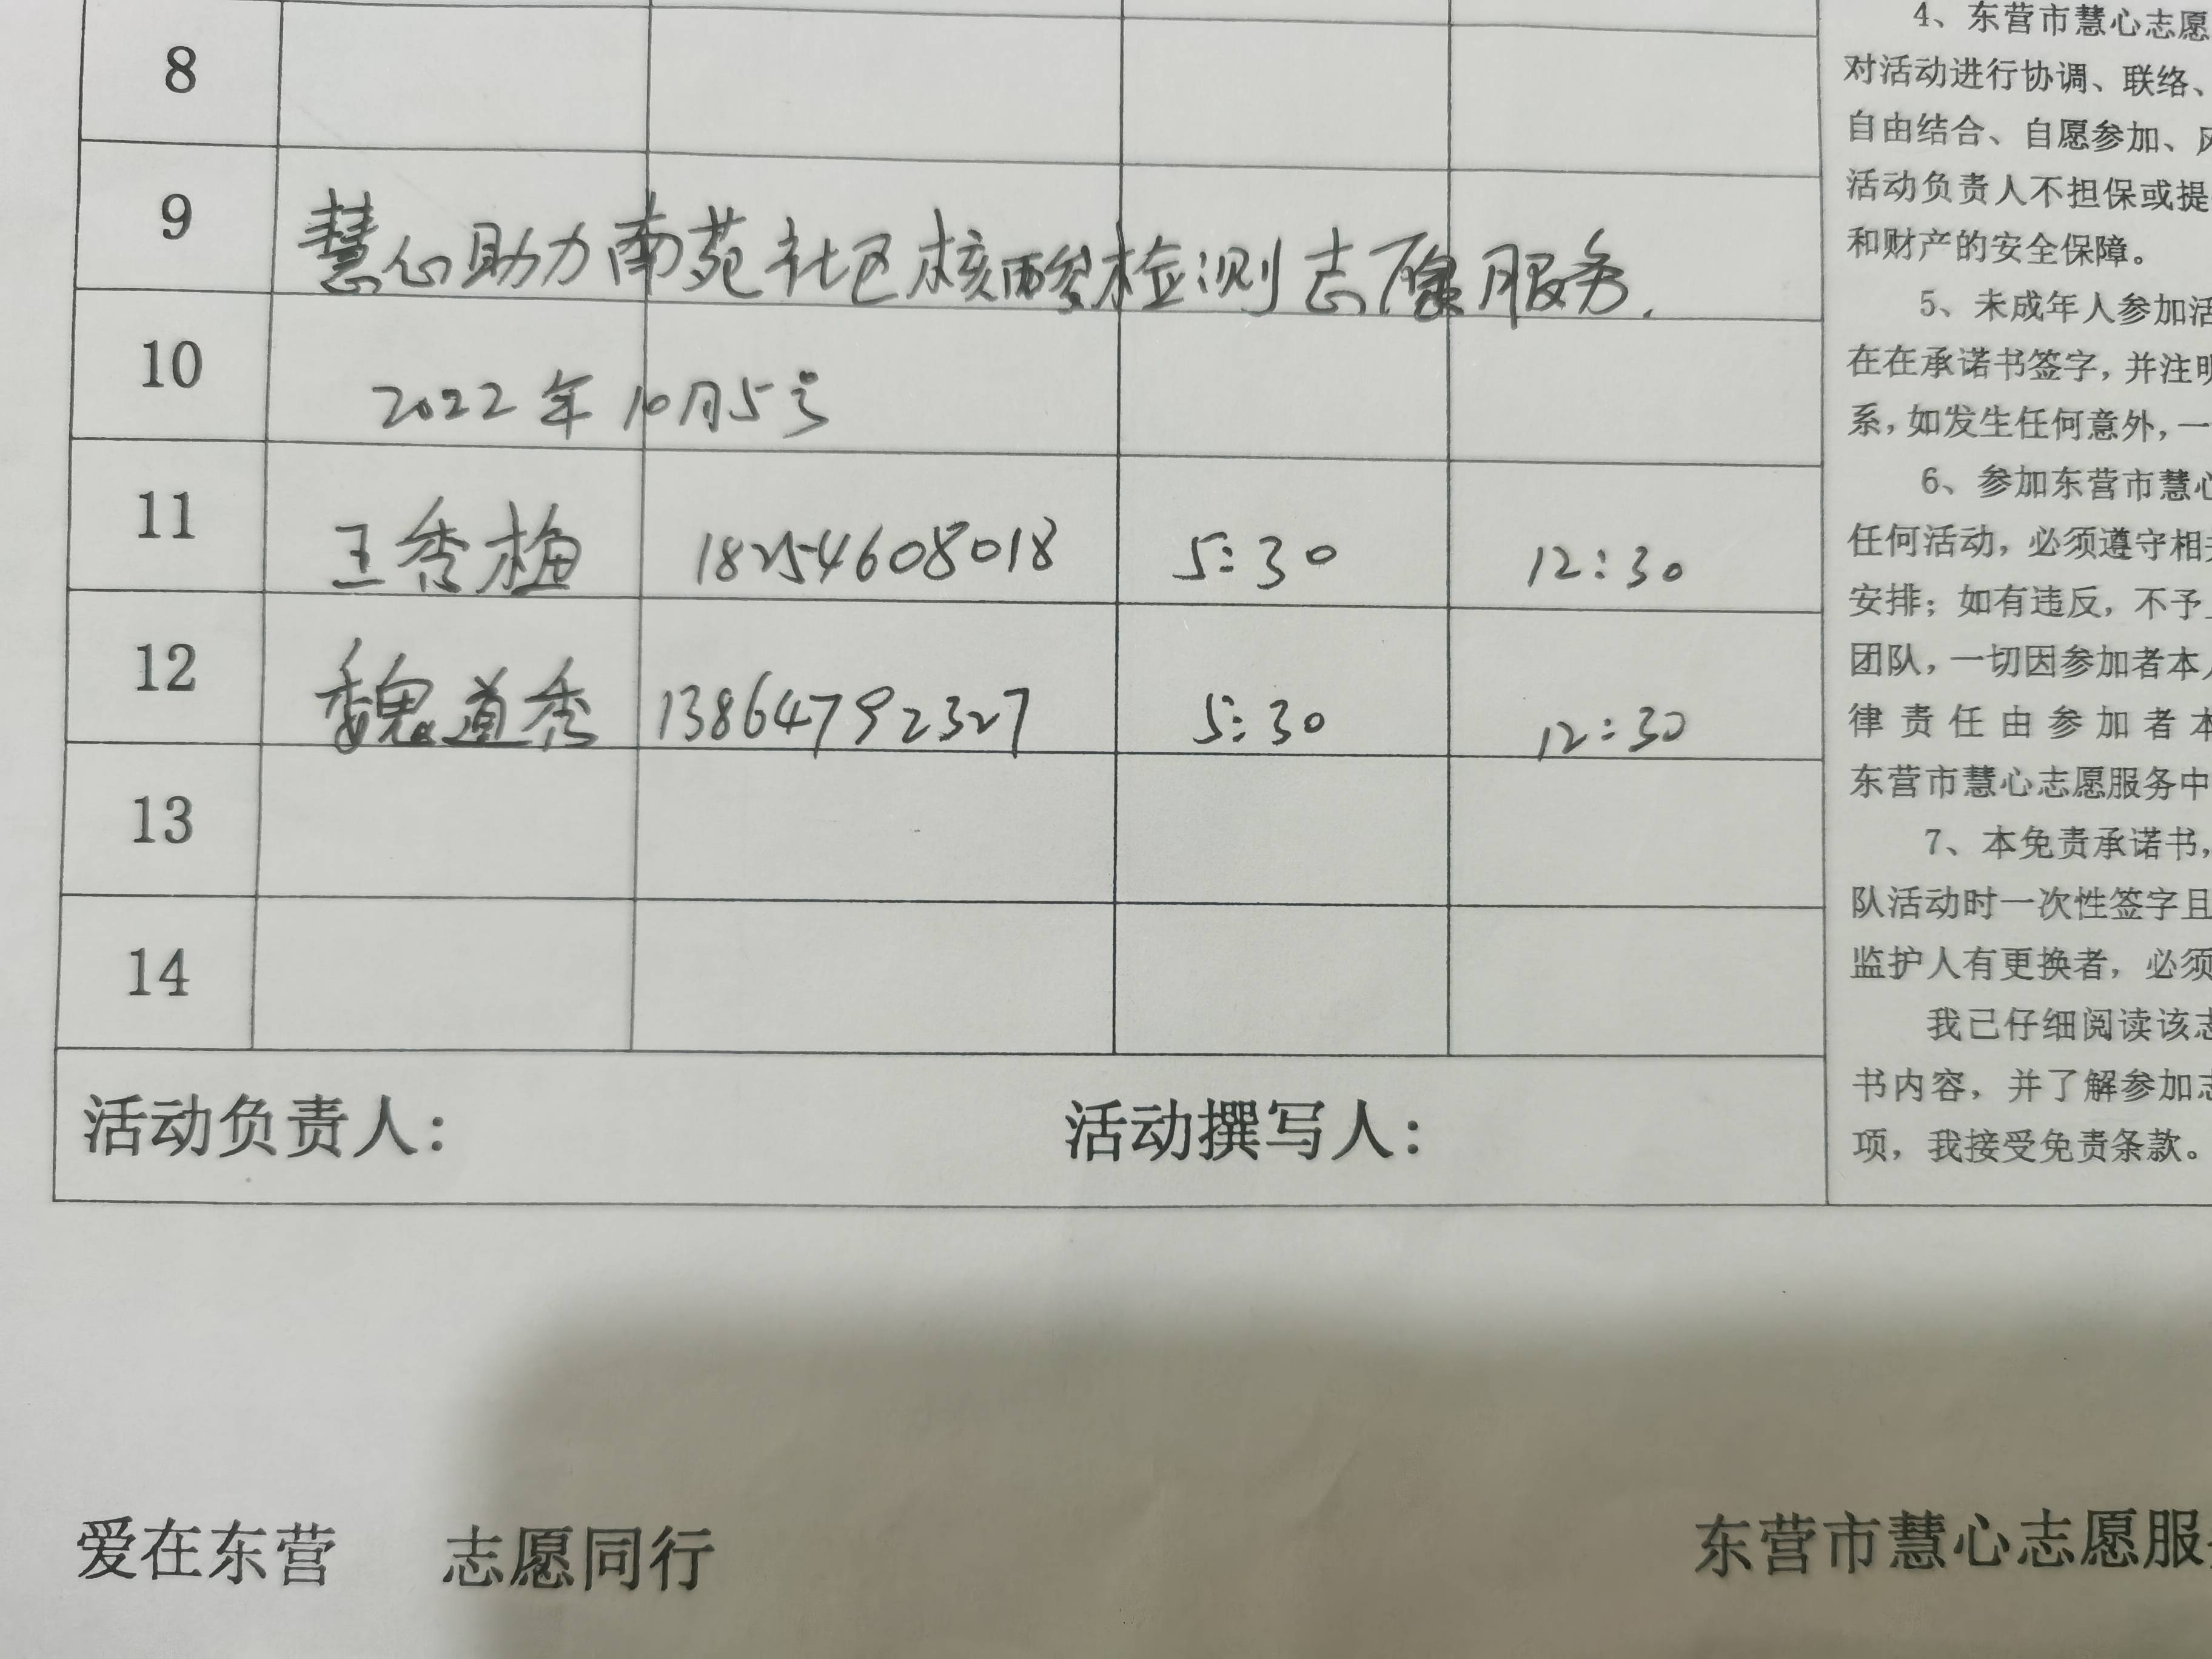 8
9 慧心助力南苑社区核酸检测志愿服务.
10 2022年10月5号
11 王秀梅 18254608018 5:30 12:30
12 魏道秀 13864792327 5:30 12:30
13
14
活动负责人: 活动撰写人:
4、东营市慧心志愿
对活动进行协调、联络、
自由结合、自愿参加、风
活动负责人不担保或提
和财产的安全保障。
5、未成年人参加活
在在承诺书签字,并注明
系,如发生任何意外,一
6、参加东营市慧心
任何活动,必须遵守相关
安排;如有违反,不予
团队,一切因参加者本人
律责任由参加者本
东营市慧心志愿服务中
7、本免责承诺书,
队活动时一次性签字且
监护人有更换者,必须
我已仔细阅读该志
书内容,并了解参加志
项,我接受免责条款。
爱在东营 志愿同行
东营市慧心志愿服